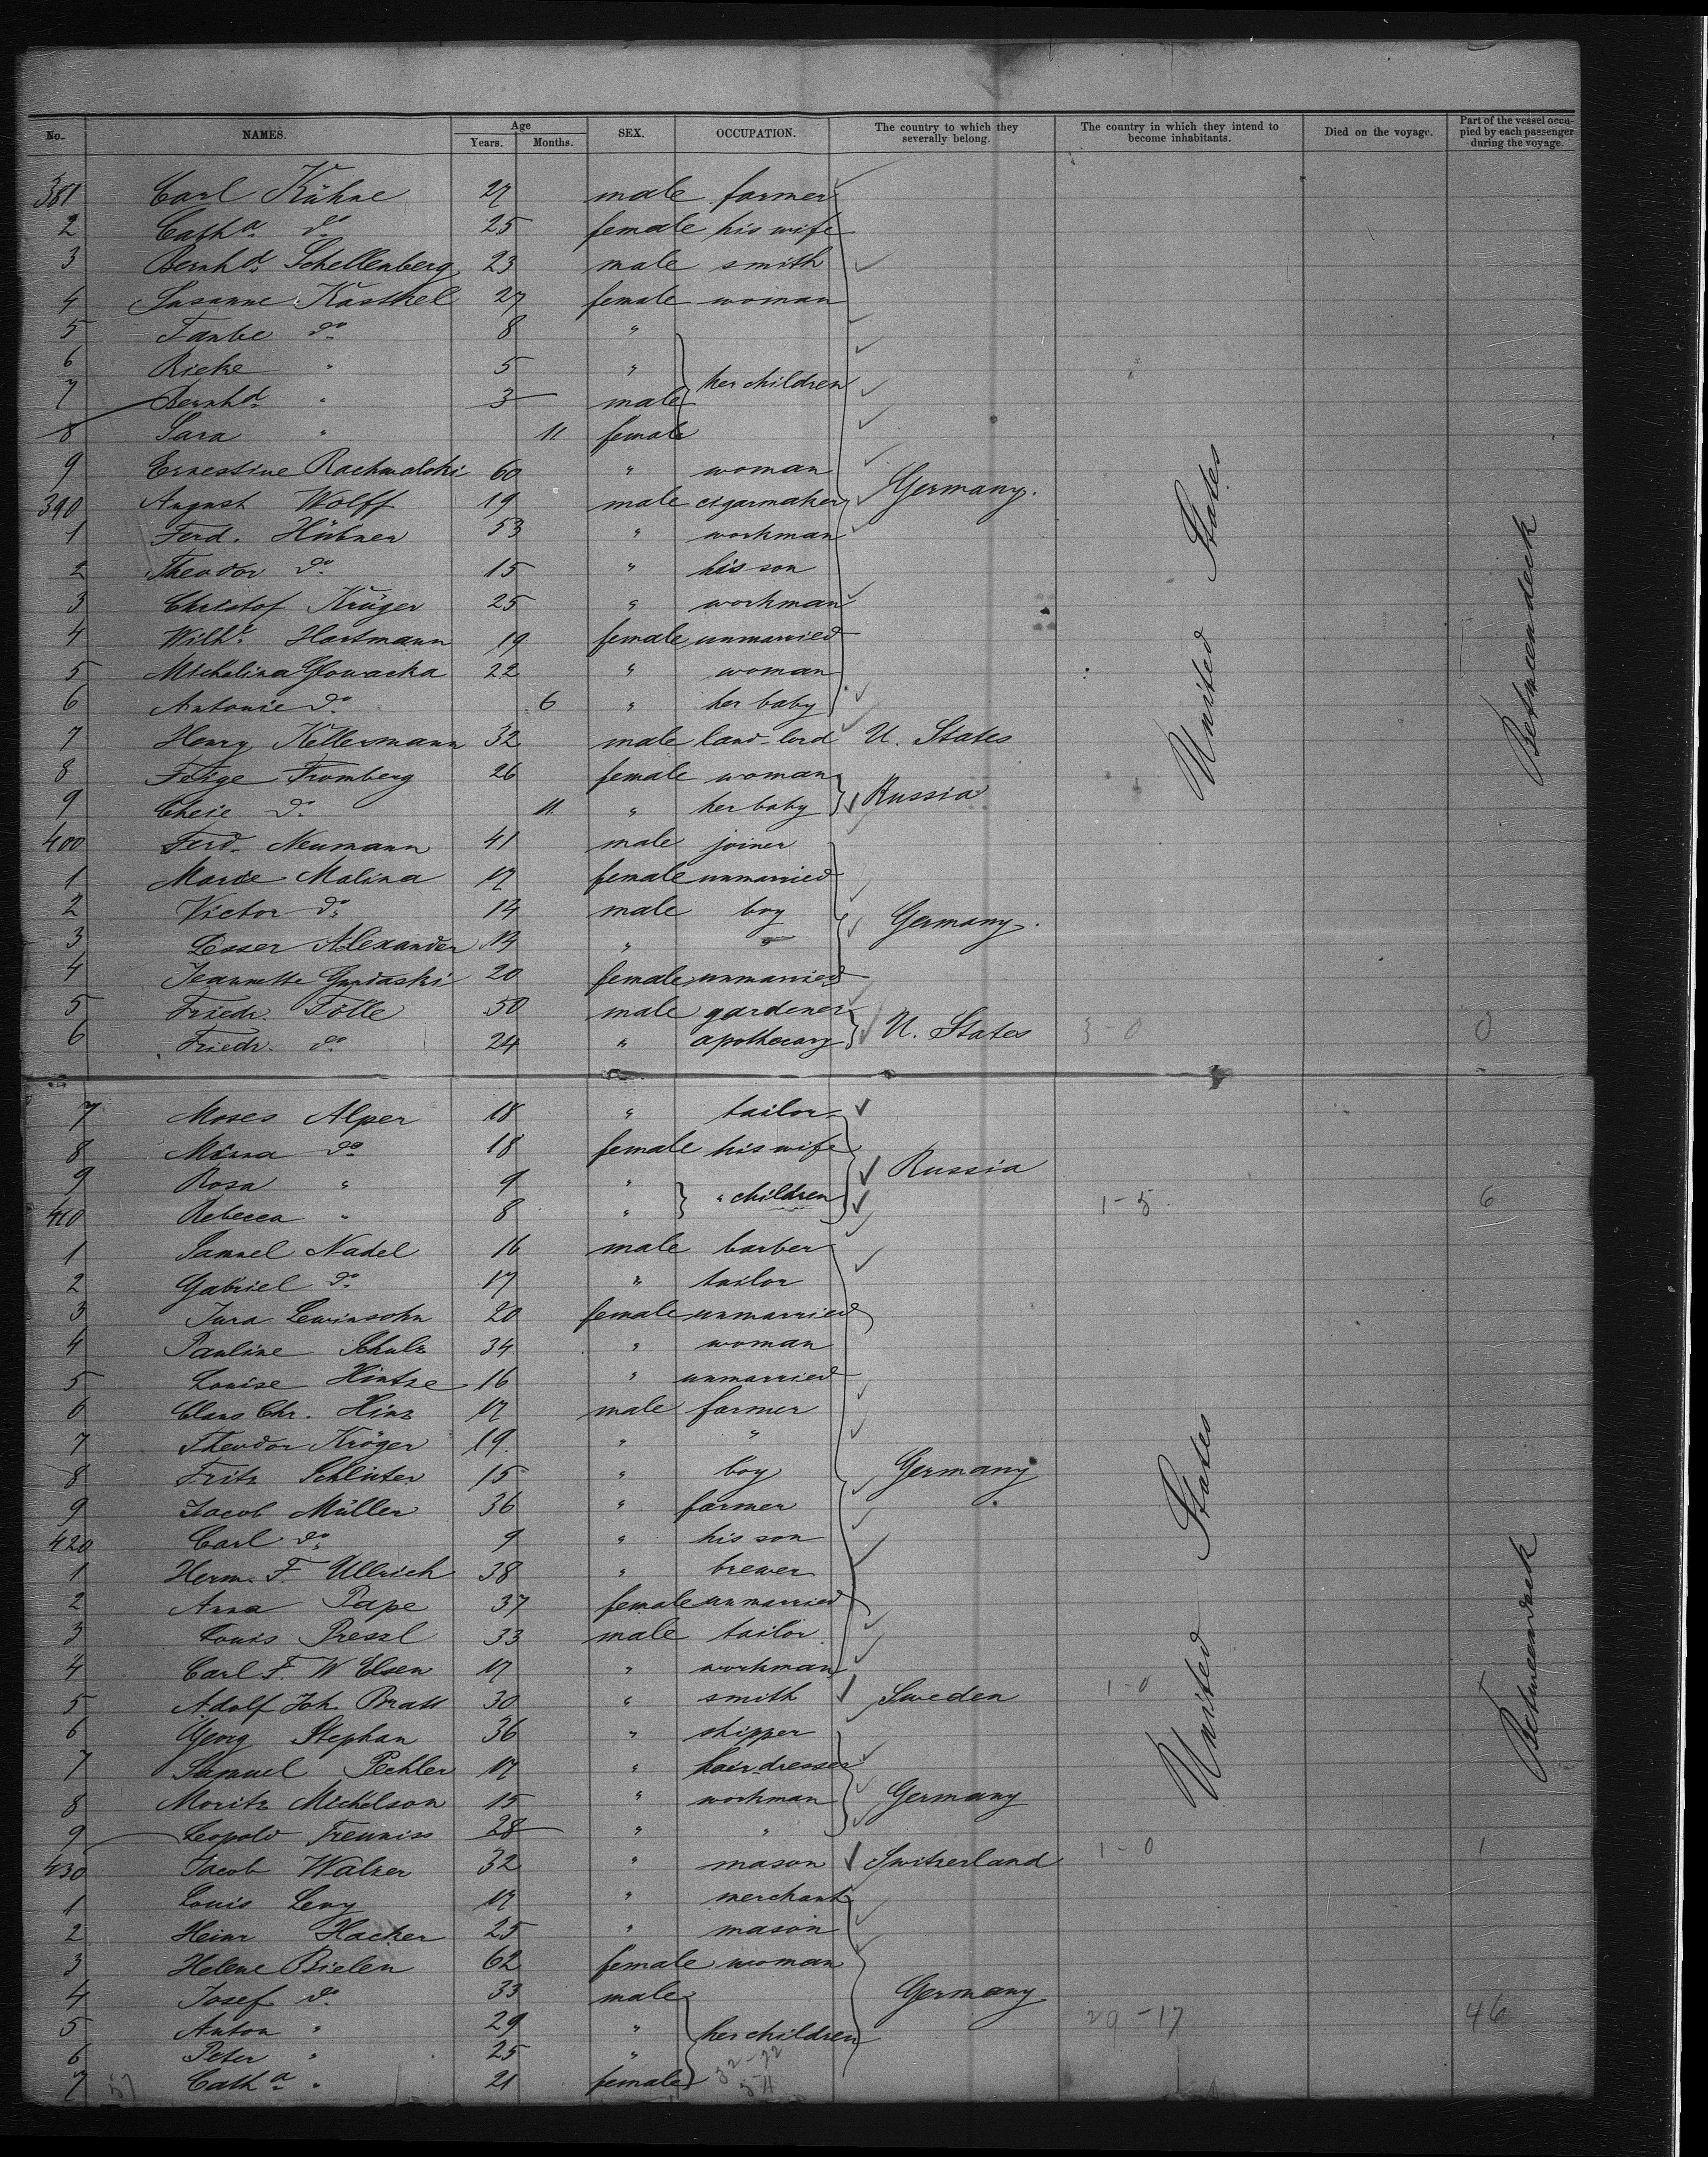 No. NAMES. Age Years. Months. SEX. OCCUPATION. The country to which they severally belong. The country in which they intend to become inhabitants. Died on the voyage. Part of the vessel occupied by each passenger during the voyage.
381 Carl Kühne 27 male farmer
2 Catha. do 25 female his wife
3 Bernhd. Schellenberg 23 male smith
4 Susanne Kasthel 27 female woman
5 Taube do 8 "
6 Rieke " 5 " her children
7 Bernhd. " 3 male
8 Sara " 11 female
9 Ernestine Rachwalski 60 " woman
390 August Wolff 19 male cigarmaker Germany.
1 Ferd. Hübner 53 " workman
2 Theodor do 15 " his son
3 Christof Krüger 25 " workman
4 Wilhe. Hartmann 19 female unmarried
5 Michalina Glowacka 22 " woman
6 Antonie do 6 " her baby
7 Henry Kellermann 32 male land-lord U. States
8 Feige Fromberg 26 female woman
9 Cheie do 11 " her baby Russia
400 Ferd. Neumann 41 male joiner
1 Marie Malina 17 female unmarried
2 Victor do 14 male boy Germany.
3 Lesser Alexander 14 " "
4 Jeannette 20 female unmarried
5 Friedr. Tölle 50 male gardener
6 Friedr. do 24 " apothecary U. States 3-0 0
United States
Betweendeck
7 Moses Alper 18 " tailor
8 Minna do 18 female his wife
9 Rosa " 9 " " children Russia
410 Rebecca " 8 " 1-5 6
1 Samuel Nadel 16 male barber
2 Gabriel do 17 " tailor
3 Jura Lewinsohn 20 female unmarried
4 Pauline Schulz 34 " woman
5 Louise Hintze 16 " unmarried
6 Claus Chr. Hinz 17 male farmer
7 Theodor Kröger 19. " "
8 Fritz Schlüter 15 " boy Germany
9 Jacob Müller 36 " farmer
420 Carl do 9 " his son
1 Herm. F. Ullrich 38 " brewer
2 Anna Pape 37 female unmarried
3 Louis Pressl 33 male tailor
4 Carl F. W Elsen 17 " workman
5 Adolf Joh. Bratt 30 " smith Sweden 1-0 1
6 Georg Stephan 36 " skipper
7 Samuel Pechler 17 " hairdresser
8 Moritz Michelson 15 " workman Germany
9 Leopold 28 " "
430 Jacob Walzer 32 " mason Switzerland 1-0 1
1 Louis Levy 17 " merchant
2 Heinr Hacker 25 " mason
3 Helene Bielen 62 female woman
4 Josef do 33 male Germany
5 Anton " 29 " her children 29-17 46
6 Peter " 25 "
7 Catha. " 21 female
United States
Betweendeck
57
32-22
54